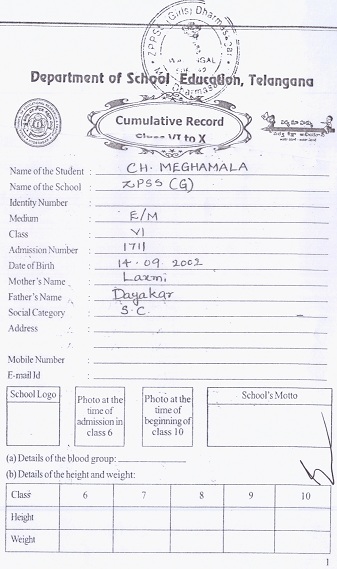 ZPPSS (Girls) Dharmasagar
Department of School Education, Telangana
Cumulative Record
Class VI to X
Name of the Student : CH. MEGHAMALA
Name of the School : ZPSS (G)
Identity Number :
Medium : E/M
Class : VI
Admission Number : 1711
Date of Birth : 14-09-2002
Mother's Name : Laxmi
Father's Name : Dayakar
Social Category : S.C.
Address :
Mobile Number :
E-mail Id :
School Logo
Photo at the time of admission in class 6
Photo at the time of beginning of class 10
School's Motto
(a) Details of the blood group:
(b) Details of the height and weight:
Class 6 7 8 9 10
Height
Weight
1